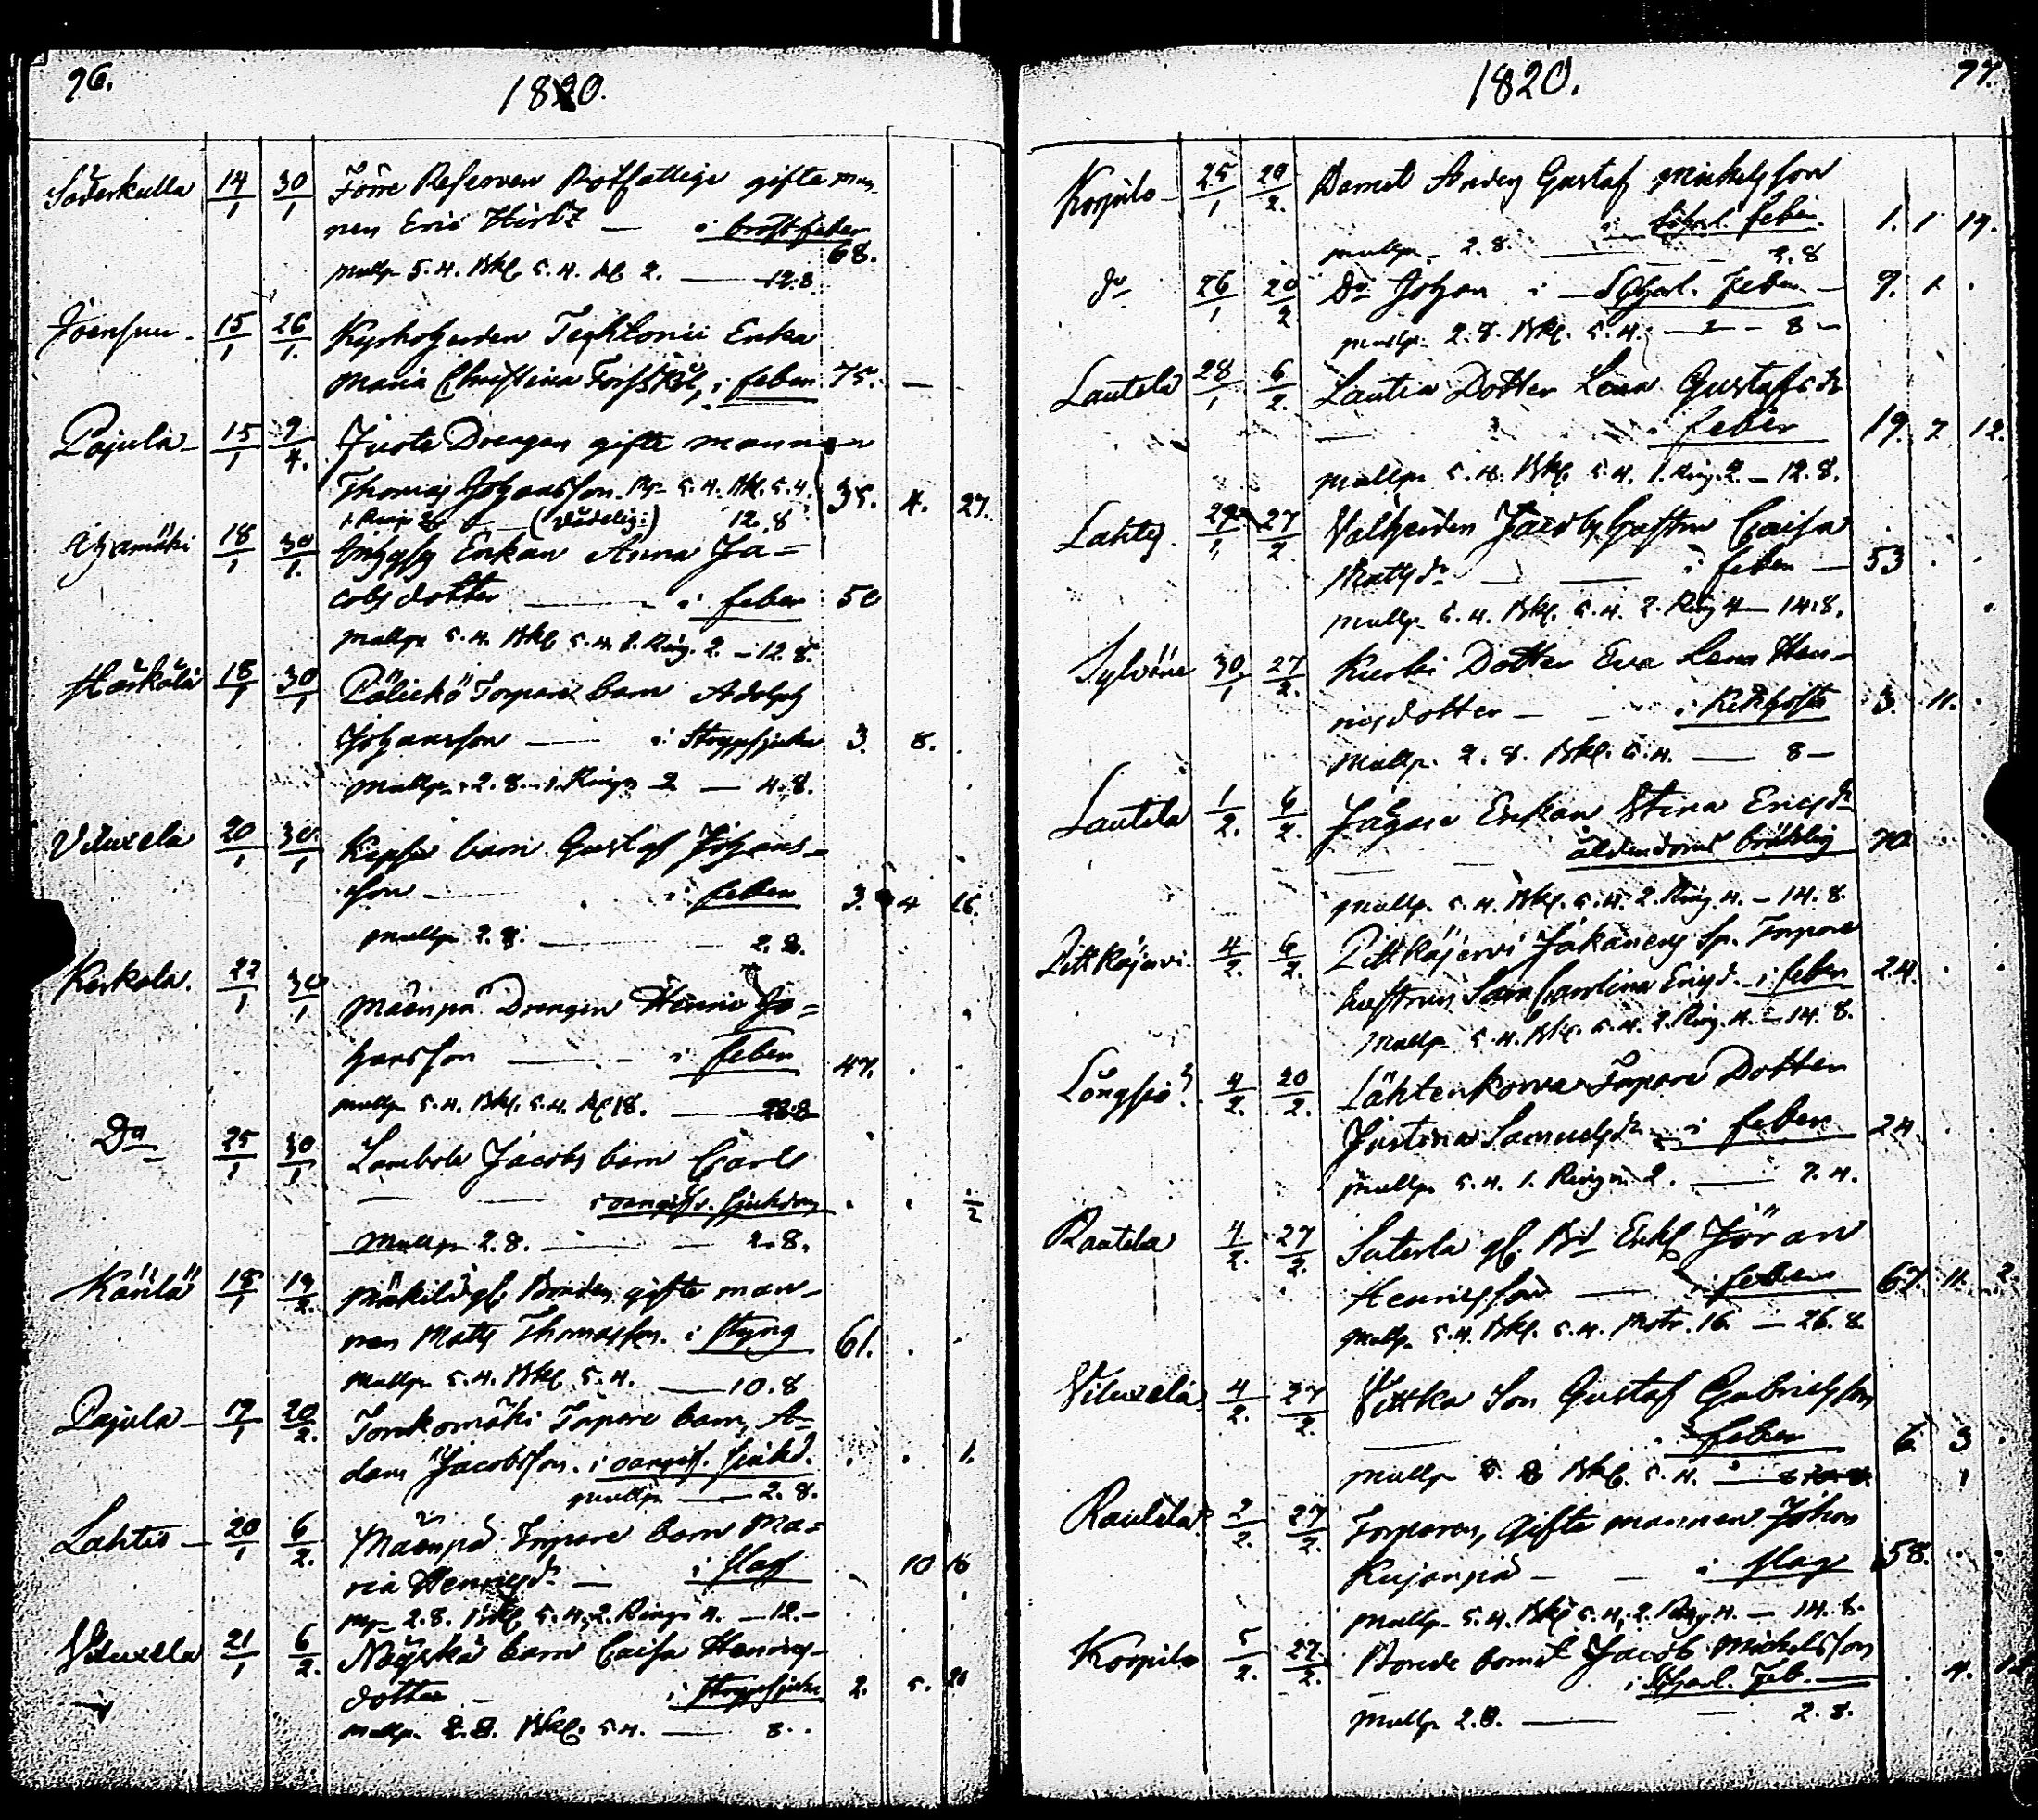 96.
1820.
Söderkulla 14/1 30/1 Förre Reserven Rotfattige gifte man-
nen Eric Hirtz — i bröstfeber 68.
mullp. 5.4. Bkl. 5.4. kl. 2. — 12.8.
Joensuu 15/1 26/1. Kyrkoherden Maria Christina i feber 75. —
Pajula 15/1 9/4. Juota Drengen gifte mannen
Thomas Johansson. Mp. 5.4. Bkl. 5.4. 35. 4. 27.
1. Ring. 2. (Vådelig:) 12.8
18/1 30/1. Enkan Anna Ja=
cobs dotter — i feber 50
mullp. 5.4. Bkl. 5.4. 2. Ring. 2. — 12.8.
Härkälä 18/1 30/1 Torpare barn Adolph
Johansson — i 3. 8.
mullp. 2.8. 1. Ring. 2 — 4.8.
Viluxela 20/1 30/1 barn Gustaf Johans-
son — i feber 3. 4 26.
mullp. 2.8. — 2.8.
Kerkola. 22/1 30/1 Mäenpä Drengen Henric Jo=
hansson — i feber 47.
mullp. 5.4. Bkl. 5.4. kl. 18. — 28.8
Do 25/1 30/1 Lambola Jacobs barn Carl
i oangifv. sjukdom 1/2
mullp. 2.8. — 2.8.
Kärilä 18/1 19/2. Mäkilä gl. Bonden gifte man-
nen Matts Thomasson. i styng 61.
mullp. 5.4. Bkl. 5.4. — 10.8
Pajula — 19/1 20/2. Torpare barn, A-
dam Jacobsson. i oangif. sjukd. 1.
mullp. — 2.8.
Lahtis — 20/1 6/2. Mäenpä Torpare barn Ma=
ria Henricsdr — i slag 10 18
Mp. 2.8. Bkl. 5.4. 2. Ring. 4. — 12. —
Viluxela 21/1 6/2. barn Caisa Henrics-
dotter — i 2. 5. 21
mullp. 2.8. Bkl. 5.4. — 8.
1820.
97.
Korpilo 25/1 20/2. Barnet Anders Gustaf Mickelsson
i Scharl. feber. 1. 1 19.
mullp. 2.8. — 2.8
do 26/1 20/2 Do Johan i — Scharl. feber — 9. 1.
mullp. 2.8. Bkl. 5.4. — 8 —
Lautela 28/1 6/2. Lautia Dotter Lena Gustafsdr
i feber 19. 7 12.
mullp. 5.4. Bkl. 5.4. 1. Ring. 2. — 12.8.
Lahtis. 29/1 27/2 Jacobs hustru Caisa
Mattsdr — i feber — 53
mullp. 5.4. Bkl. 5.4. 2. Ring 4 — 14.8.
Sylvöne 30/1 27/2. Dotter Eva Lena Hen-
ricsdotter — i Kikhosta 3. 11.
mullp. 2.8. Bkl. 5.4. — 8 —
Lautela 1/2. 6/2. Enkan Stina Ericsdr
ålderdoms bräcklig 70
mullp. 5.4. Bkl. 5.4. 2. Ring. 4. — 14.8.
Pittkäjervi. 4/2. 6/2. Pittkäjervi Torpare
hustrun Sara Carolina Ericsd. i feber 24.
mullp. 5.4. Bkl. 5.4. 2. Ring. 4. — 14.8.
Långsjö 4/2. 20/2. Lähtenkorva Torpare Dotter
Justina Samuelsdr i feber 24.
mullp. 5.4. 1. Ringn. 2. — 7.4.
Rautela 4/2. 27/2. Suterla gl. Bd Enkl. Jöran
Henricsson — i feber 67. 11. 2.
mullp. 5.4. Bkl. 5.4. 16. — 26.8.
Viluxela 4/2. 27/2. Vittka Son Gustaf Gabrielsson
i feber 6. 3
mullp. Bkl. 5.4.
Rautela 2/2. 27/2. Torparen, Gifte mannen Johan
Kujanpä — i slag 58.
mullp. 5.4. Bkl. 5.4. 2. Ring. 4. — 14.8.
Korpilo 5/2. 27/2. Bonde barnet Jacob Mickelsson
i Scharl. Feb. — 4.
mullp. 2.8. — 2.8.